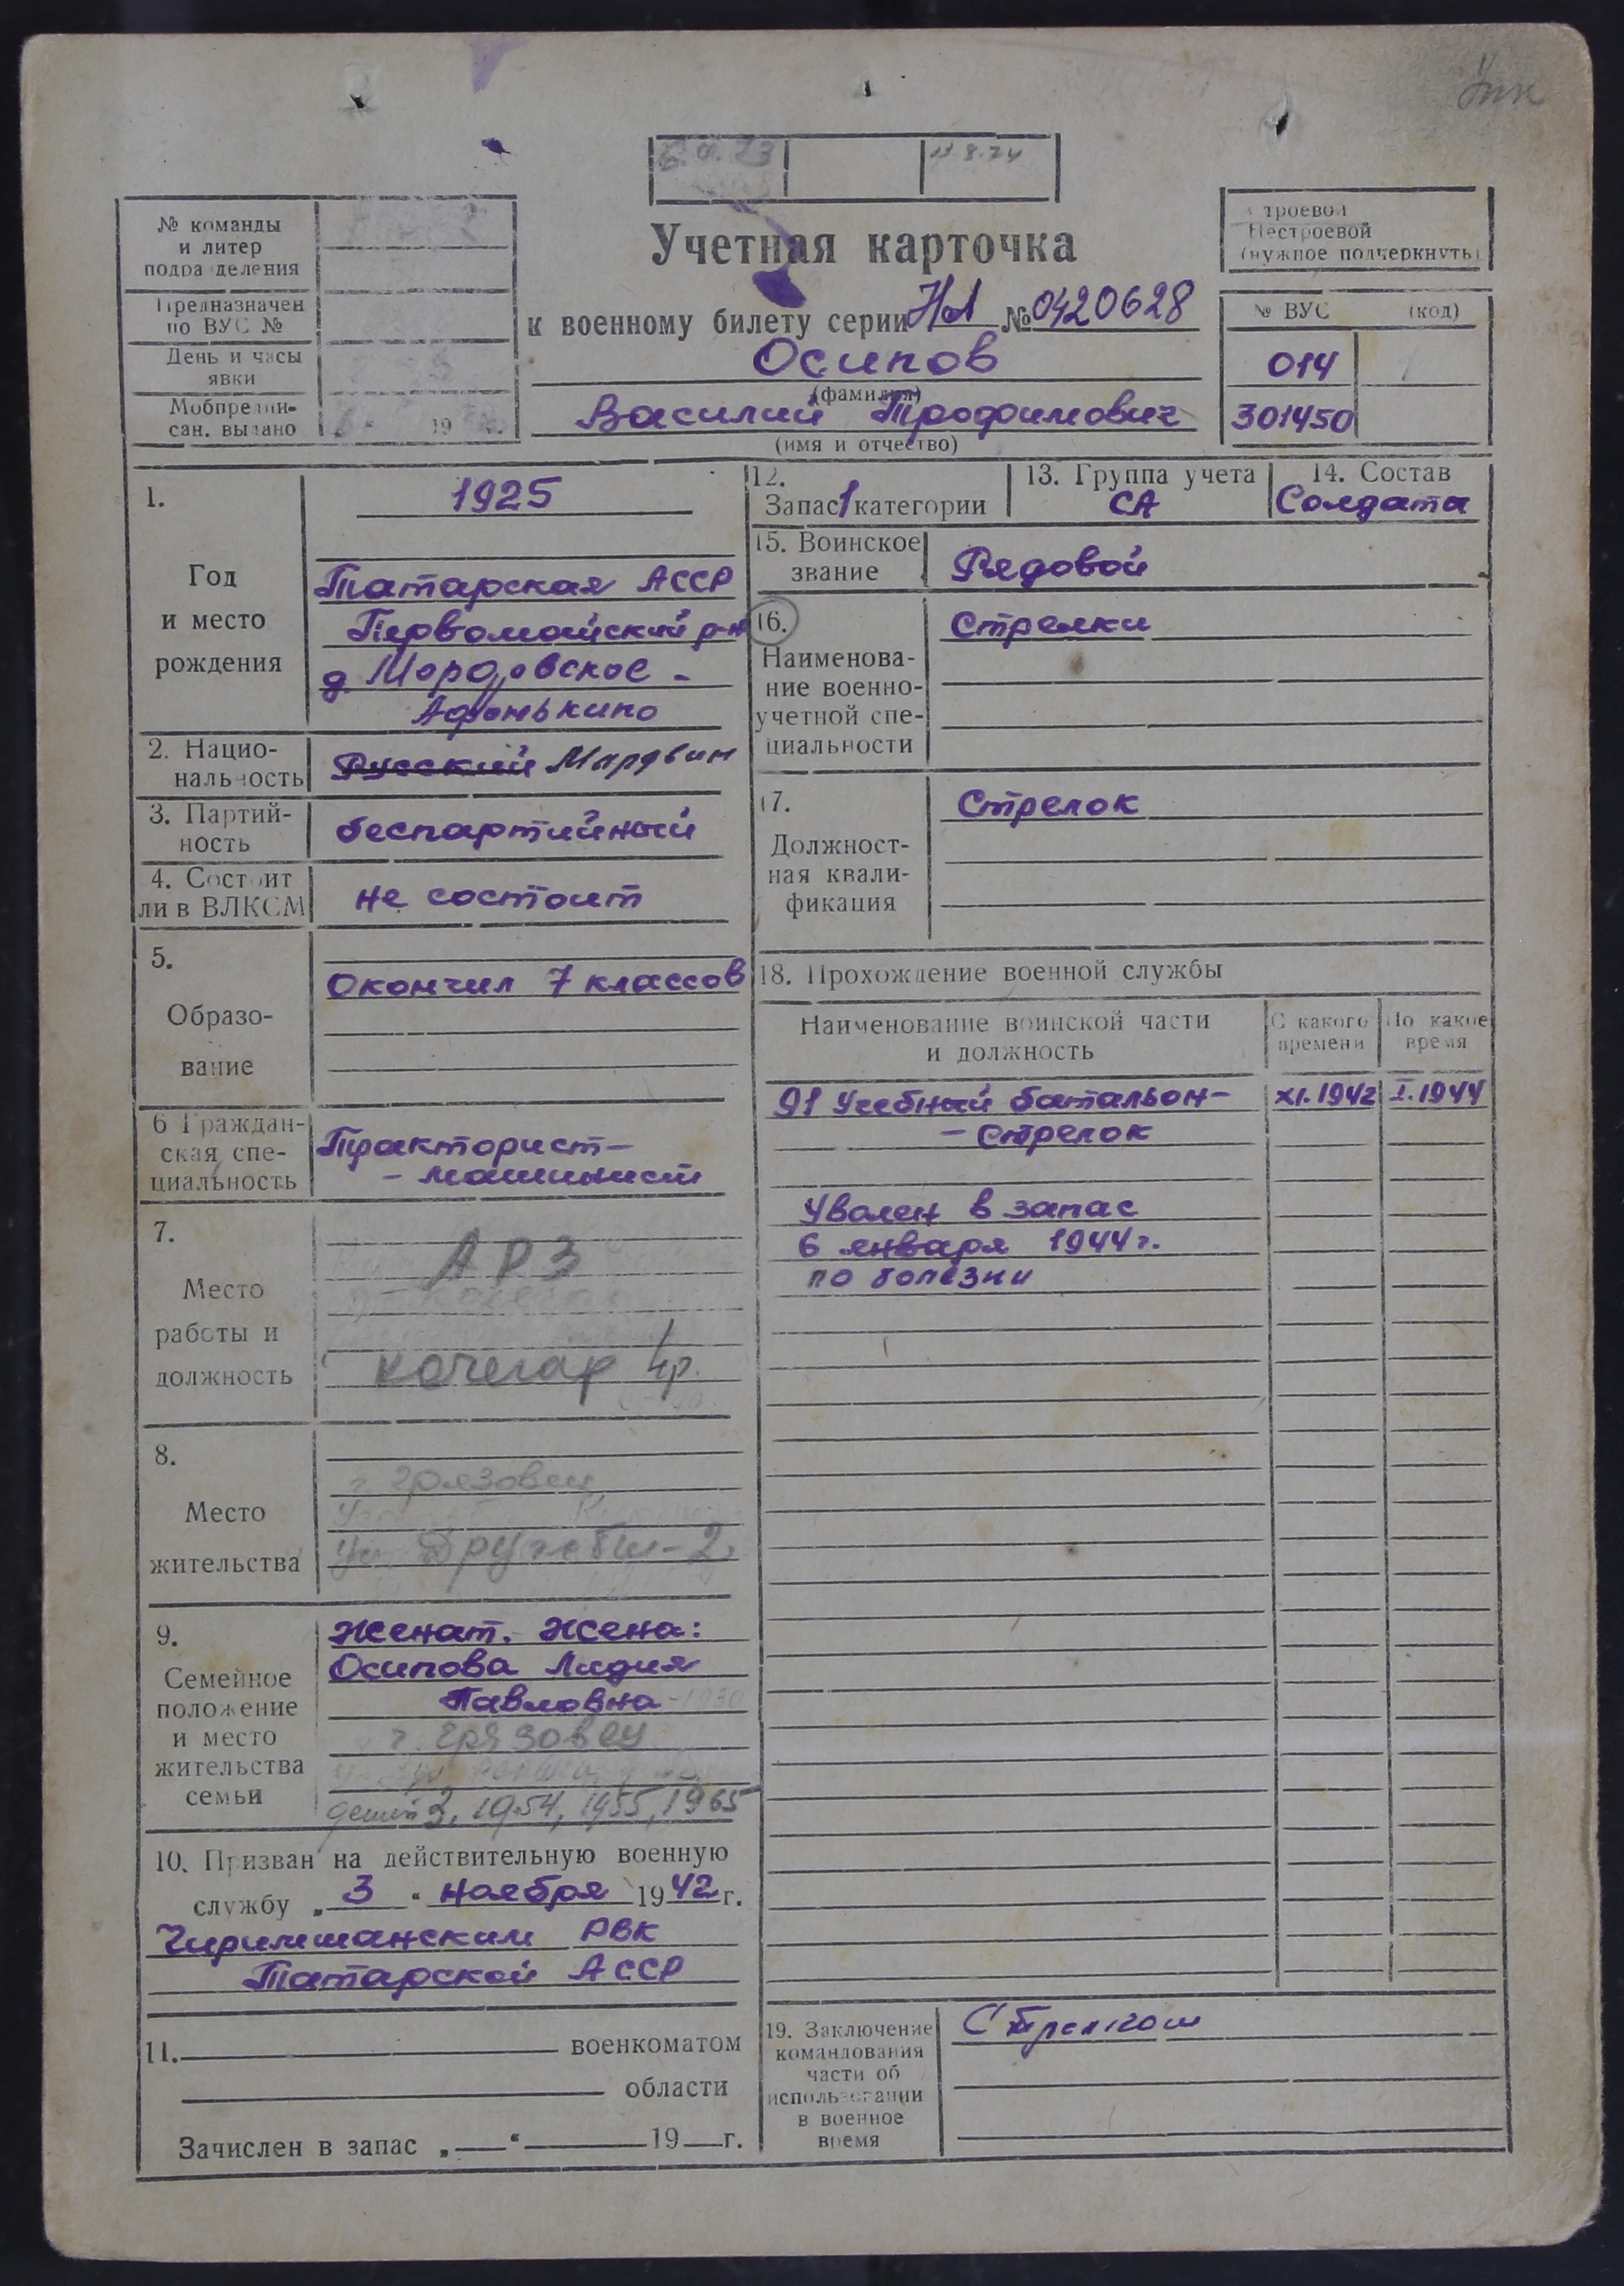 11.8.74
№ команды
и литер
подразделения
Предназначен
по ВУС №
День и часы
явки
Мобпредпи-
сан. выдано
19
Учетная карточка
к военному билету серии НА № 0420628
Осипов
(фамилия)
Василий Трофимович
(имя и отчество)
Строевой
Нестроевой
(нужное подчеркнуть)
№ ВУС (код)
014
301450
1.
Год
и место
рождения
1925
Татарская АССР
Первомайский р-н
д. Мордовское -
Афонькино
2. Нацио-
нальность
Русский Мардвин
3. Партий-
ность
беспартийный
4. Состоит
ли в ВЛКСМ
не состоит
5.
Образо-
вание
Окончил 7 классов
6 Граждан-
ская спе-
циальность
Тракторист-
- машинист
7.
Место
работы и
должность
АРЗ
кочегар 4р.
8.
Место
жительства
г. Грязовец
ул Дружбы-2
9.
Семейное
положение
и место
жительства
семьи
Женат. Жена:
Осипова Лидия
Павловна -1930
г. Грязовец
детей 3, 1954, 1955, 1965
10. Призван на действительную военную
службу „3“ ноября 1942 г.
Чиримшанским РВК
Татарской АССР
11. военкоматом
области
Зачислен в запас „ “ 19 г.
12.
Запас 1 категории
13. Группа учета
СА
14. Состав
Солдата
15. Воинское
звание
Рядовой
16.
Наименова-
ние военно-
учетной спе-
циальности
Стрелки
17.
Должност-
ная квали-
фикация
Стрелок
18. Прохождение военной службы
Наименование воинской части
и должность
С какого
времени
По какое
время
91 Учебный батальон- XI.1942 I.1944
- стрелок
Уволен в запас
6 января 1944 г.
по болезни
19. Заключение
командования
части об
использовании
в военное
время
Стрелком